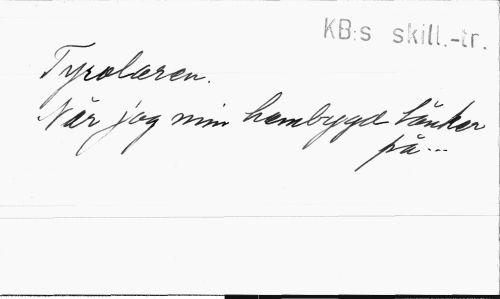 KB:s skill.-tr.
Tyrolaren.
När jag min hembygd tänker
på...